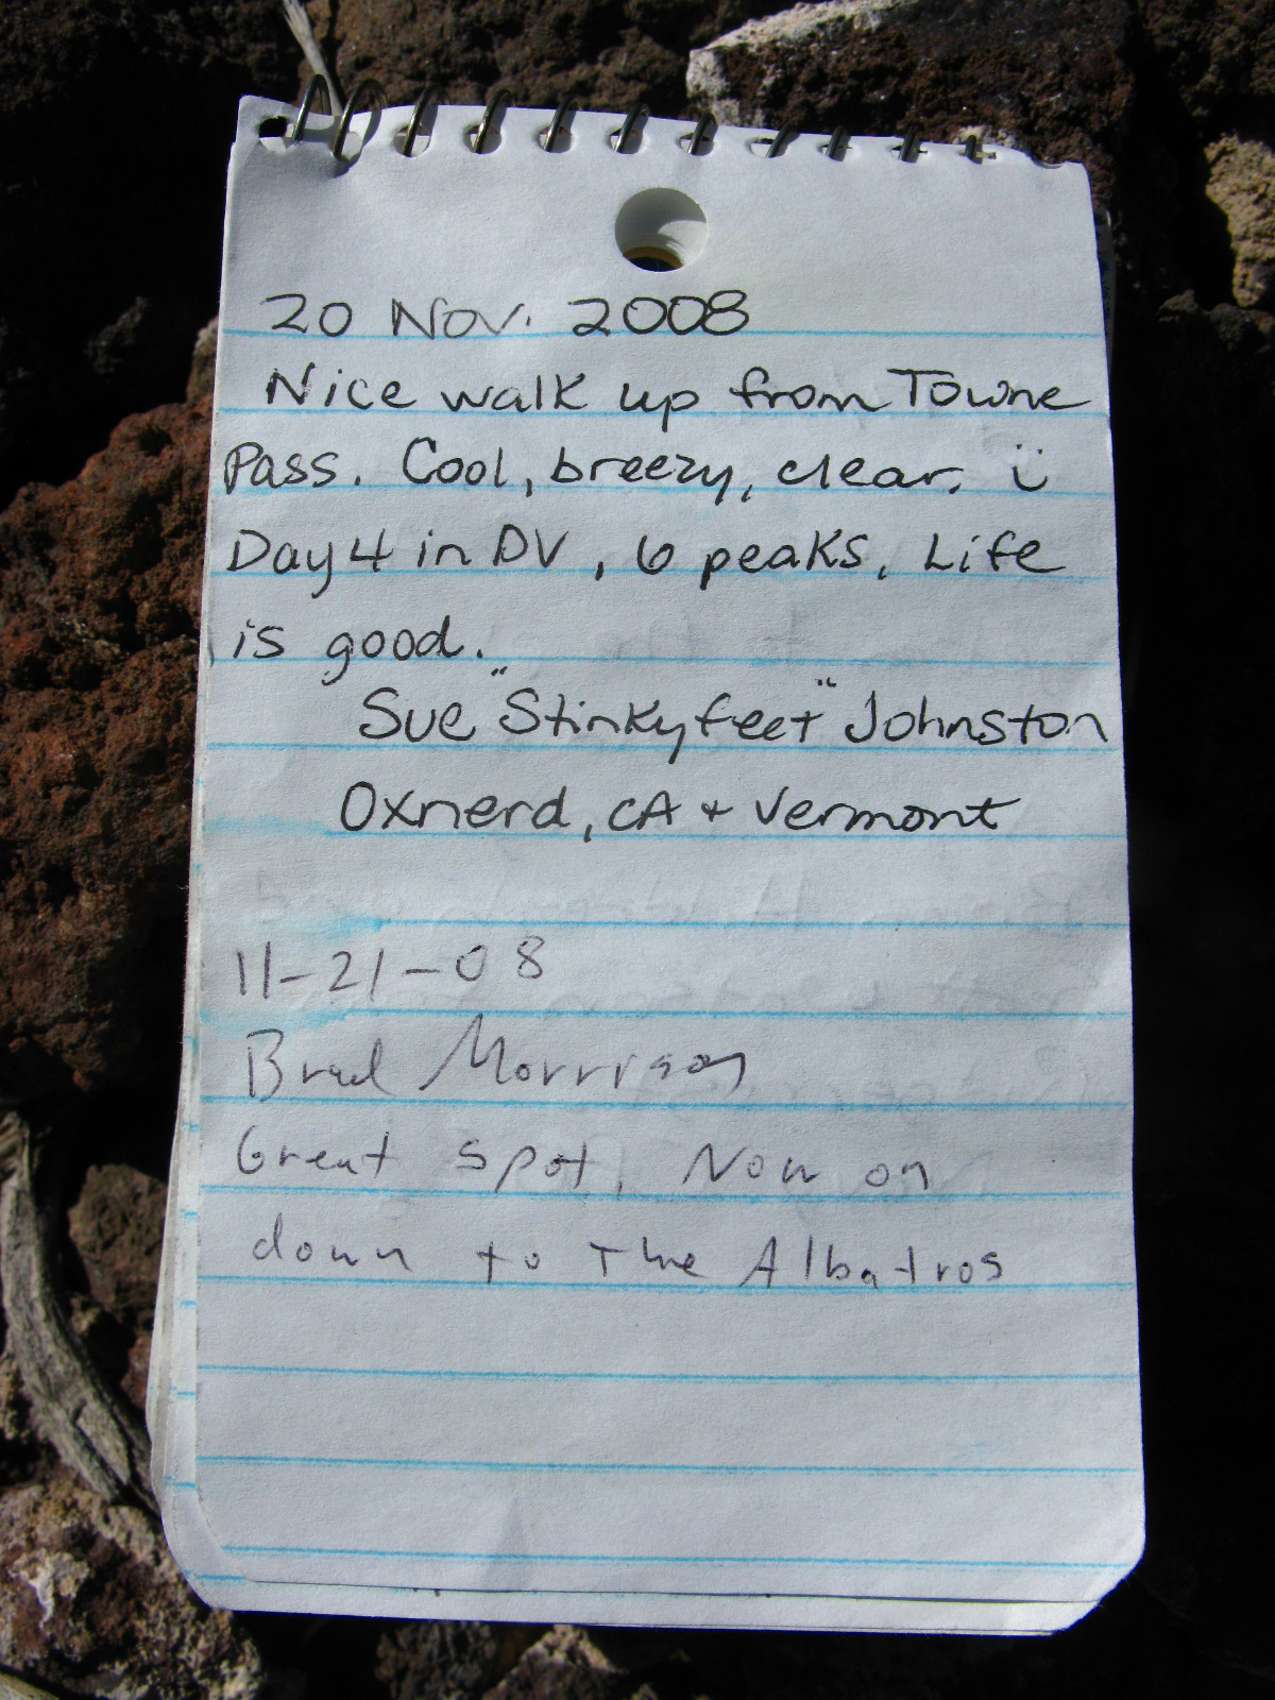 20 Nov. 2008
Nice walk up from Towne
Pass. Cool, breezy, clear. ü
Day 4 in DV, 6 peaks. Life
is good.
Sue "Stinkyfeet" Johnston
Oxnerd, CA + Vermont
11-21-08
Brad Morrison
Great spot, Now on
down to The Albatros